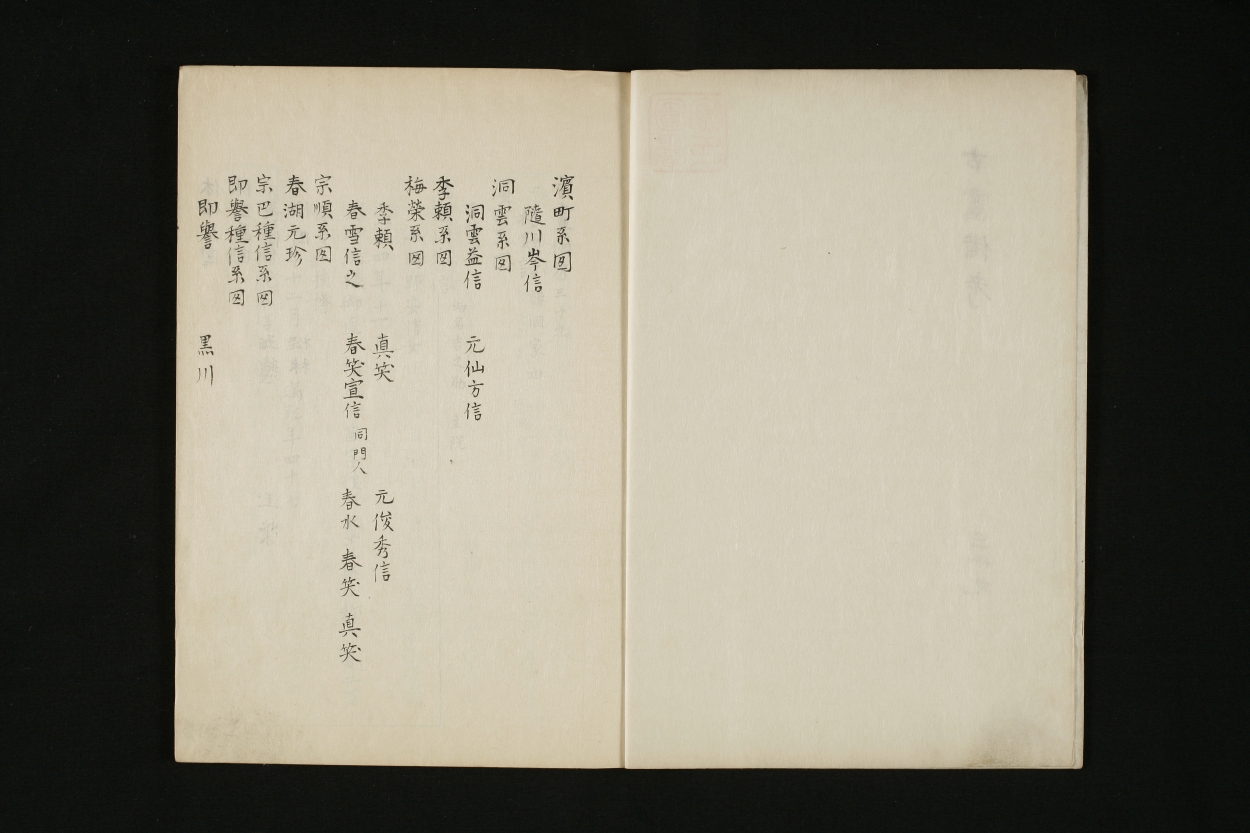 濱町系図
隨川岑信
洞雲系図
洞雲益信 元仙方信
季頼系図
梅榮系図
季頼 真笑 元俊秀信
春雪信之 春笑宣信 同門人 春水 春笑 真笑
宗順系図
春湖元珍
宗巴種信系図
即譽種信系図
即譽 黒川